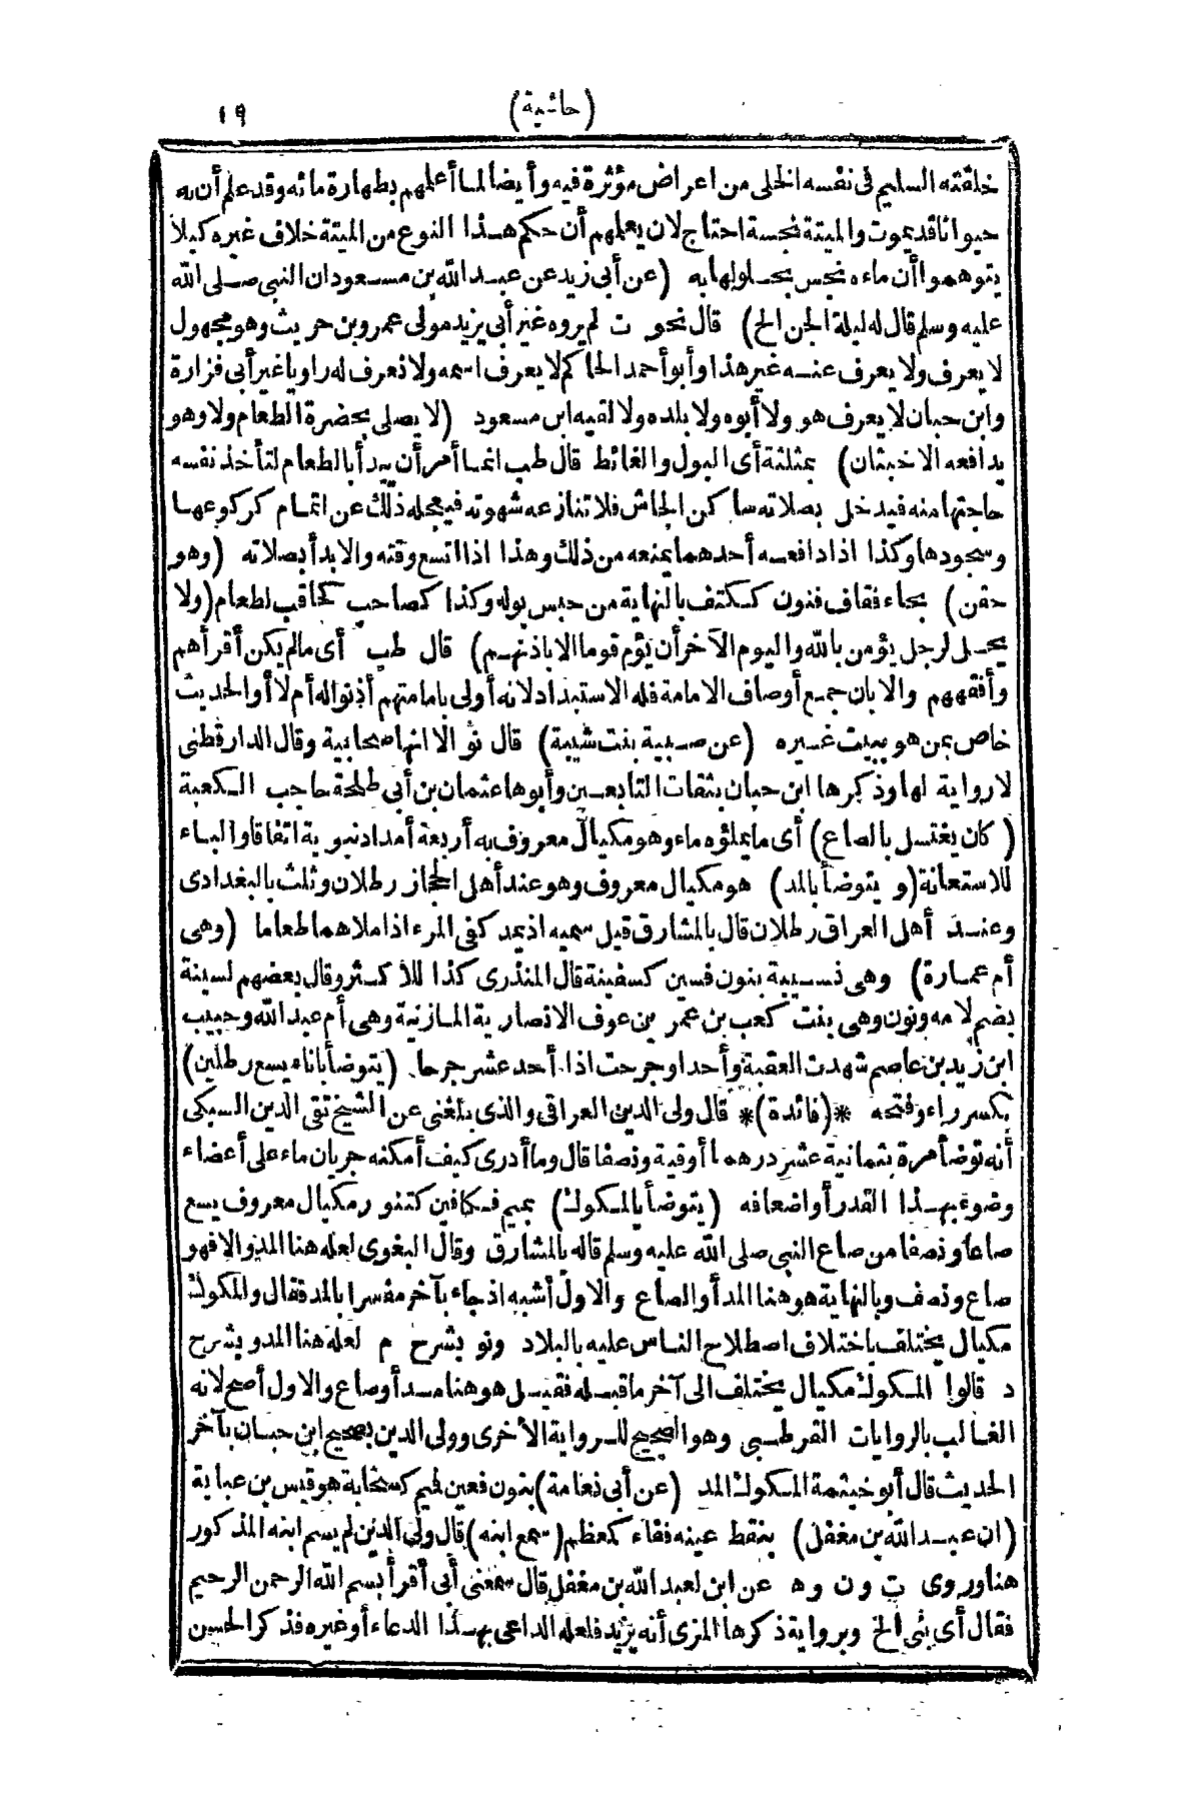 (حاشية) ١٩
خلقته السليم فى نفسه الخلى من اعراض مؤثرة فيه وأيضا لما أعلمهم بطهارة مائه وقد علم أن به
حيوانا قد يموت والميتة نجسة احتاج لان يعلمهم أن حكم هذا النوع من الميتة خلاف غيره كيلا
يتوهموا أن ماءه نجس بحلولها به (عن أبى زيد عن عبد الله بن مسعود ان النبى صلى الله
عليه وسلم قال له ليلة الجن الخ) قال نحو ت لم يروه غير أبى يزيد مولى عمرو بن حريث وهو مجهول
لا يعرف ولا يعرف عنه غير هذا وأبو أحمد الحاكم لا يعرف اسمه ولا نعرف له راويا غير أبى فزارة
وابن حبان لا يعرف هو ولا أبوه ولا بلده ولا لقيه ابن مسعود (لا يصلى بحضرة الطعام ولا وهو
يدافعه الاخبثان) بمثلثة أى البول والغائط قال طب انما أمر أن يبدأ بالطعام لتأخذ نفسه
حاجتها منه فيدخل بصلاته ساكن الجاش فلا تنازعه شهوته فيعجله ذلك عن اتمام كركوعها
وسجودها وكذا اذا دافعه أحدهما يمنعه من ذلك وهذا اذا اتسع وقته والا بدأ بصلاته (وهو
حقن) بحاء فقاف فنون ككتف بالنهاية من حبس بوله وكذا كصاحب كحاقب لطعام (ولا
يحلى لرجل يؤمن بالله واليوم الآخر أن يؤم قوما الا باذنهم) قال طب أى مالم يكن أقرأهم
وأفقههم والا بان جمع أوصاف الامامة فله الاستبداد لانه أولى بامامتهم أذنوا له أم لا أو الحديث
خاص بمن هو ببيت غيره (عن صبية بنت شيبة) قال نو الا انها صحابية وقال الدارقطنى
لا رواية لها وذكرها ابن حبان بثقات التابعين وأبوها عثمان بن أبى طلحة حاجب الكعبة
(كان يغتسل بالصاع) أى ما يملؤه ماء وهو مكيال معروف به أربعة أمداد نبوية اتفاقا والباء
للاستعانة (و يتوضأ بالمد) هو مكيال معروف وهو عند أهل الحجاز رطلان وثلث بالبغدادى
وعند أهل العراق رطلان قال بالمشارق قيل سميه اذ يمد كفى المرء اذا ملاهما طعاما (وهى
أم عمارة) وهى نسيبة بنون فسين كسفينة قال المنذرى كذا للأكثر وقال بعضهم لسينة
بضم لامه ونون وهى بنت كعب بن عمر بن عوف الانصارية المازنية وهى أم عبد الله وحبيب
ابن زيد بن عاصم شهدت العقبة وأحدا وجرحت اذا أحد عشر جرحا (يتوضأ باناء يسع رطلين)
بكسر راء وفتحه *(فائدة)* قال ولى الدين العراقى والذى بلغنى عن الشيخ تقى الدين السبكى
أنه توضأ مرة بثمانية عشر درهما أوقية ونصفا قال وما أدرى كيف أمكنه جريان ماء على أعضاء
وضوء بهذا القدر أو اضعافه (يتوضأ بالمكوك) بميم فكافين كتنور مكيال معروف يسع
صاعا ونصفا من صاع النبى صلى الله عليه وسلم قاله بالمشارق وقال البغوى لعله هنا المد والا فهو
صاع ونصف وبالنهاية هو هنا المد أو الصاع والاول أشبه اذ جاء بآخر مفسرا بالمد فقال والمكوك
مكيال يختلف باختلاف اصطلاح الناس عليه بالبلاد ونو بشرح م لعله هنا المد وبشرح
د قالوا المكوك مكيال يختلف الى آخر ما قبله فقيل هو هنا مد أو صاع والاول أصح لانه
الغالب بالروايات القرطبى وهو الصحيح للرواية الأخرى وولى الدين بصحيح ابن حبان بآخر
الحديث قال أبو خيثمة المكوك المد (عن أبى نعامة) بنون فعين فميم كسحابة هو قيس بن عباية
(ان عبد الله بن مغفل) بنقط عينه ففاء كمعظم (سمع ابنه) قال ولى الدين لم يسم ابنه المذكور
هنا وروى ت و ن و ه عن ابن لعبد الله بن مغفل قال سمعنى أبى أقرأ بسم الله الرحمن الرحيم
فقال أى بنى الخ وبرواية ذكرها المزى أنه يزيد فلعله الداعى بهذا الدعاء أو غيره فذكر الحسين